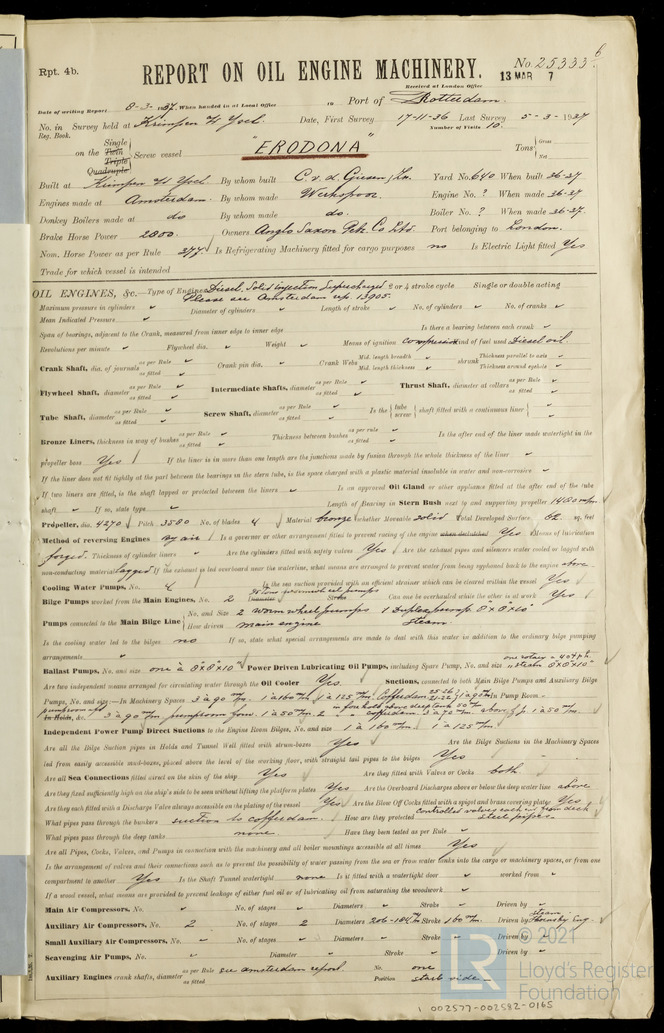 6
Rpt. 4b.
No 25333
REPORT ON OIL ENGINE MACHINERY.
13 MAR 7
Received at London Office
Date of writing Report 8-3-1937 When handed in at Local Office 10 Port of Rotterdam.
No. in Survey held at Krimpen a/d Yssel Date, First Survey 17-11-36 Last Survey 5-3-1937
Reg. Book. Number of Visits 10.
Single
on the Twin Screw vessel "ERODONA" Tons Gross
Triple Net
Quadruple
Built at Krimpen a/d Yssel By whom built C. v. d. Giessen Yard No. 640 When built 36-37
Engines made at Amsterdam. By whom made Werkspoor Engine No. ? When made 36-37
Donkey Boilers made at do By whom made do. Boiler No. ? When made 36-37.
Brake Horse Power 2800. Owners Anglo Saxon Pet. Co Ltd. Port belonging to London.
Nom. Horse Power as per Rule 377 Is Refrigerating Machinery fitted for cargo purposes no Is Electric Light fitted Yes
Trade for which vessel is intended
OIL ENGINES, &c.—Type of Engines Diesel, Solid injection Supercharged 2 or 4 stroke cycle Single or double acting
Please see Amsterdam rep. 13905.
Maximum pressure in cylinders Diameter of cylinders Length of stroke No. of cylinders No. of cranks
Mean Indicated Pressure
Span of bearings, adjacent to the Crank, measured from inner edge to inner edge Is there a bearing between each crank
Revolutions per minute Flywheel dia. Weight Means of ignition compression Kind of fuel used Diesel oil.
Crank Shaft, dia. of journals as per Rule as fitted Crank pin dia. Crank Webs Mid. length breadth Mid. length thickness shrunk Thickness parallel to axis Thickness around eyehole
Flywheel Shaft, diameter as per Rule as fitted Intermediate Shafts, diameter as per Rule as fitted Thrust Shaft, diameter at collars as per Rule as fitted
Tube Shaft, diameter as per Rule as fitted Screw Shaft, diameter as per Rule as fitted Is the tube screw shaft fitted with a continuous liner
Bronze Liners, thickness in way of bushes as per Rule as fitted Thickness between bushes as per rule as fitted Is the after end of the liner made watertight in the
propeller boss Yes If the liner is in more than one length are the junctions made by fusion through the whole thickness of the liner
If the liner does not fit tightly at the part between the bearings in the stern tube, is the space charged with a plastic material insoluble in water and non-corrosive
If two liners are fitted, is the shaft lapped or protected between the liners Is an approved Oil Gland or other appliance fitted at the after end of the tube
shaft If so, state type Length of Bearing in Stern Bush next to and supporting propeller 1480 m/m
Propeller, dia. 4270 Pitch 3580 No. of blades 4 Material bronze whether Moveable solid Total Developed Surface 62 sq. feet
Method of reversing Engines by air Is a governor or other arrangement fitted to prevent racing of the engine when declutched Yes Means of lubrication
forged. Thickness of cylinder liners Are the cylinders fitted with safety valves Yes Are the exhaust pipes and silencers water cooled or lagged with
non-conducting material lagged If the exhaust is led overboard near the waterline, what means are arranged to prevent water being syphoned back to the engine above.
Cooling Water Pumps, No. 4 Is the sea suction provided with an efficient strainer which can be cleared within the vessel Yes
Bilge Pumps worked from the Main Engines, No. 2 Diameter Stroke Can one be overhauled while the other is at work Yes
Pumps connected to the Main Bilge Line No. and Size 2 worm wheel pumps 1 Duplex pump 8"x8"x10"
How driven main engine Steam.
Is the cooling water led to the bilges no If so, state what special arrangements are made to deal with this water in addition to the ordinary bilge pumping
arrangements one rotary
Ballast Pumps, No. and size one à 8"x8"x10" Power Driven Lubricating Oil Pumps, including Spare Pump, No. and size " steam 8"x8"x10"
Are two independent means arranged for circulating water through the Oil Cooler Yes. Suctions, connected to both Main Bilge Pumps and Auxiliary Bilge
Pumps, No. and size:—In Machinery Spaces 3 à 90 m/m 1 à 160 m/m 1 à 125 m/m Cofferdam In Pump Room
In Holds, &c. 3 à 90 m/m pumproom fore. 1 à 50 m/m 2 1 à 50 m/m.
Independent Power Pump Direct Suctions to the Engine Room Bilges, No. and size 1 à 160 m/m 1 à 125 m/m
Are all the Bilge Suction pipes in Holds and Tunnel Well fitted with strum-boxes Yes Are the Bilge Suctions in the Machinery Spaces
led from easily accessible mud-boxes, placed above the level of the working floor, with straight tail pipes to the bilges Yes
Are all Sea Connections fitted direct on the skin of the ship Yes Are they fitted with Valves or Cocks both
Are they fixed sufficiently high on the ship's side to be seen without lifting the platform plates Yes Are the Overboard Discharges above or below the deep water line above
Are they each fitted with a Discharge Valve always accessible on the plating of the vessel Yes Are the Blow Off Cocks fitted with a spigot and brass covering plate Yes
controlled valves each end from deck
What pipes pass through the bunkers suction to cofferdam. How are they protected steel pipes.
What pipes pass through the deep tanks none. Have they been tested as per Rule
Are all Pipes, Cocks, Valves, and Pumps in connection with the machinery and all boiler mountings accessible at all times Yes
Is the arrangement of valves and their connections such as to prevent the possibility of water passing from the sea or from water tanks into the cargo or machinery spaces, or from one
compartment to another Yes Is the Shaft Tunnel watertight none Is it fitted with a watertight door worked from
If a wood vessel, what means are provided to prevent leakage of either fuel oil or of lubricating oil from saturating the woodwork
Main Air Compressors, No. No. of stages Diameters Stroke Driven by
Auxiliary Air Compressors, No. 2 No. of stages 2 Diameters 206-184 m/m Stroke 160 m/m. Driven by steam Hornsby Eng.
Small Auxiliary Air Compressors, No. No. of stages Diameters Stroke Driven by
Scavenging Air Pumps, No. Diameter Stroke Driven by
Auxiliary Engines crank shafts, diameter as per Rule as fitted see amsterdam report. No. one
Position starb side
© 2021
LR
Lloyd's Register
Foundation
002577-002582-0165